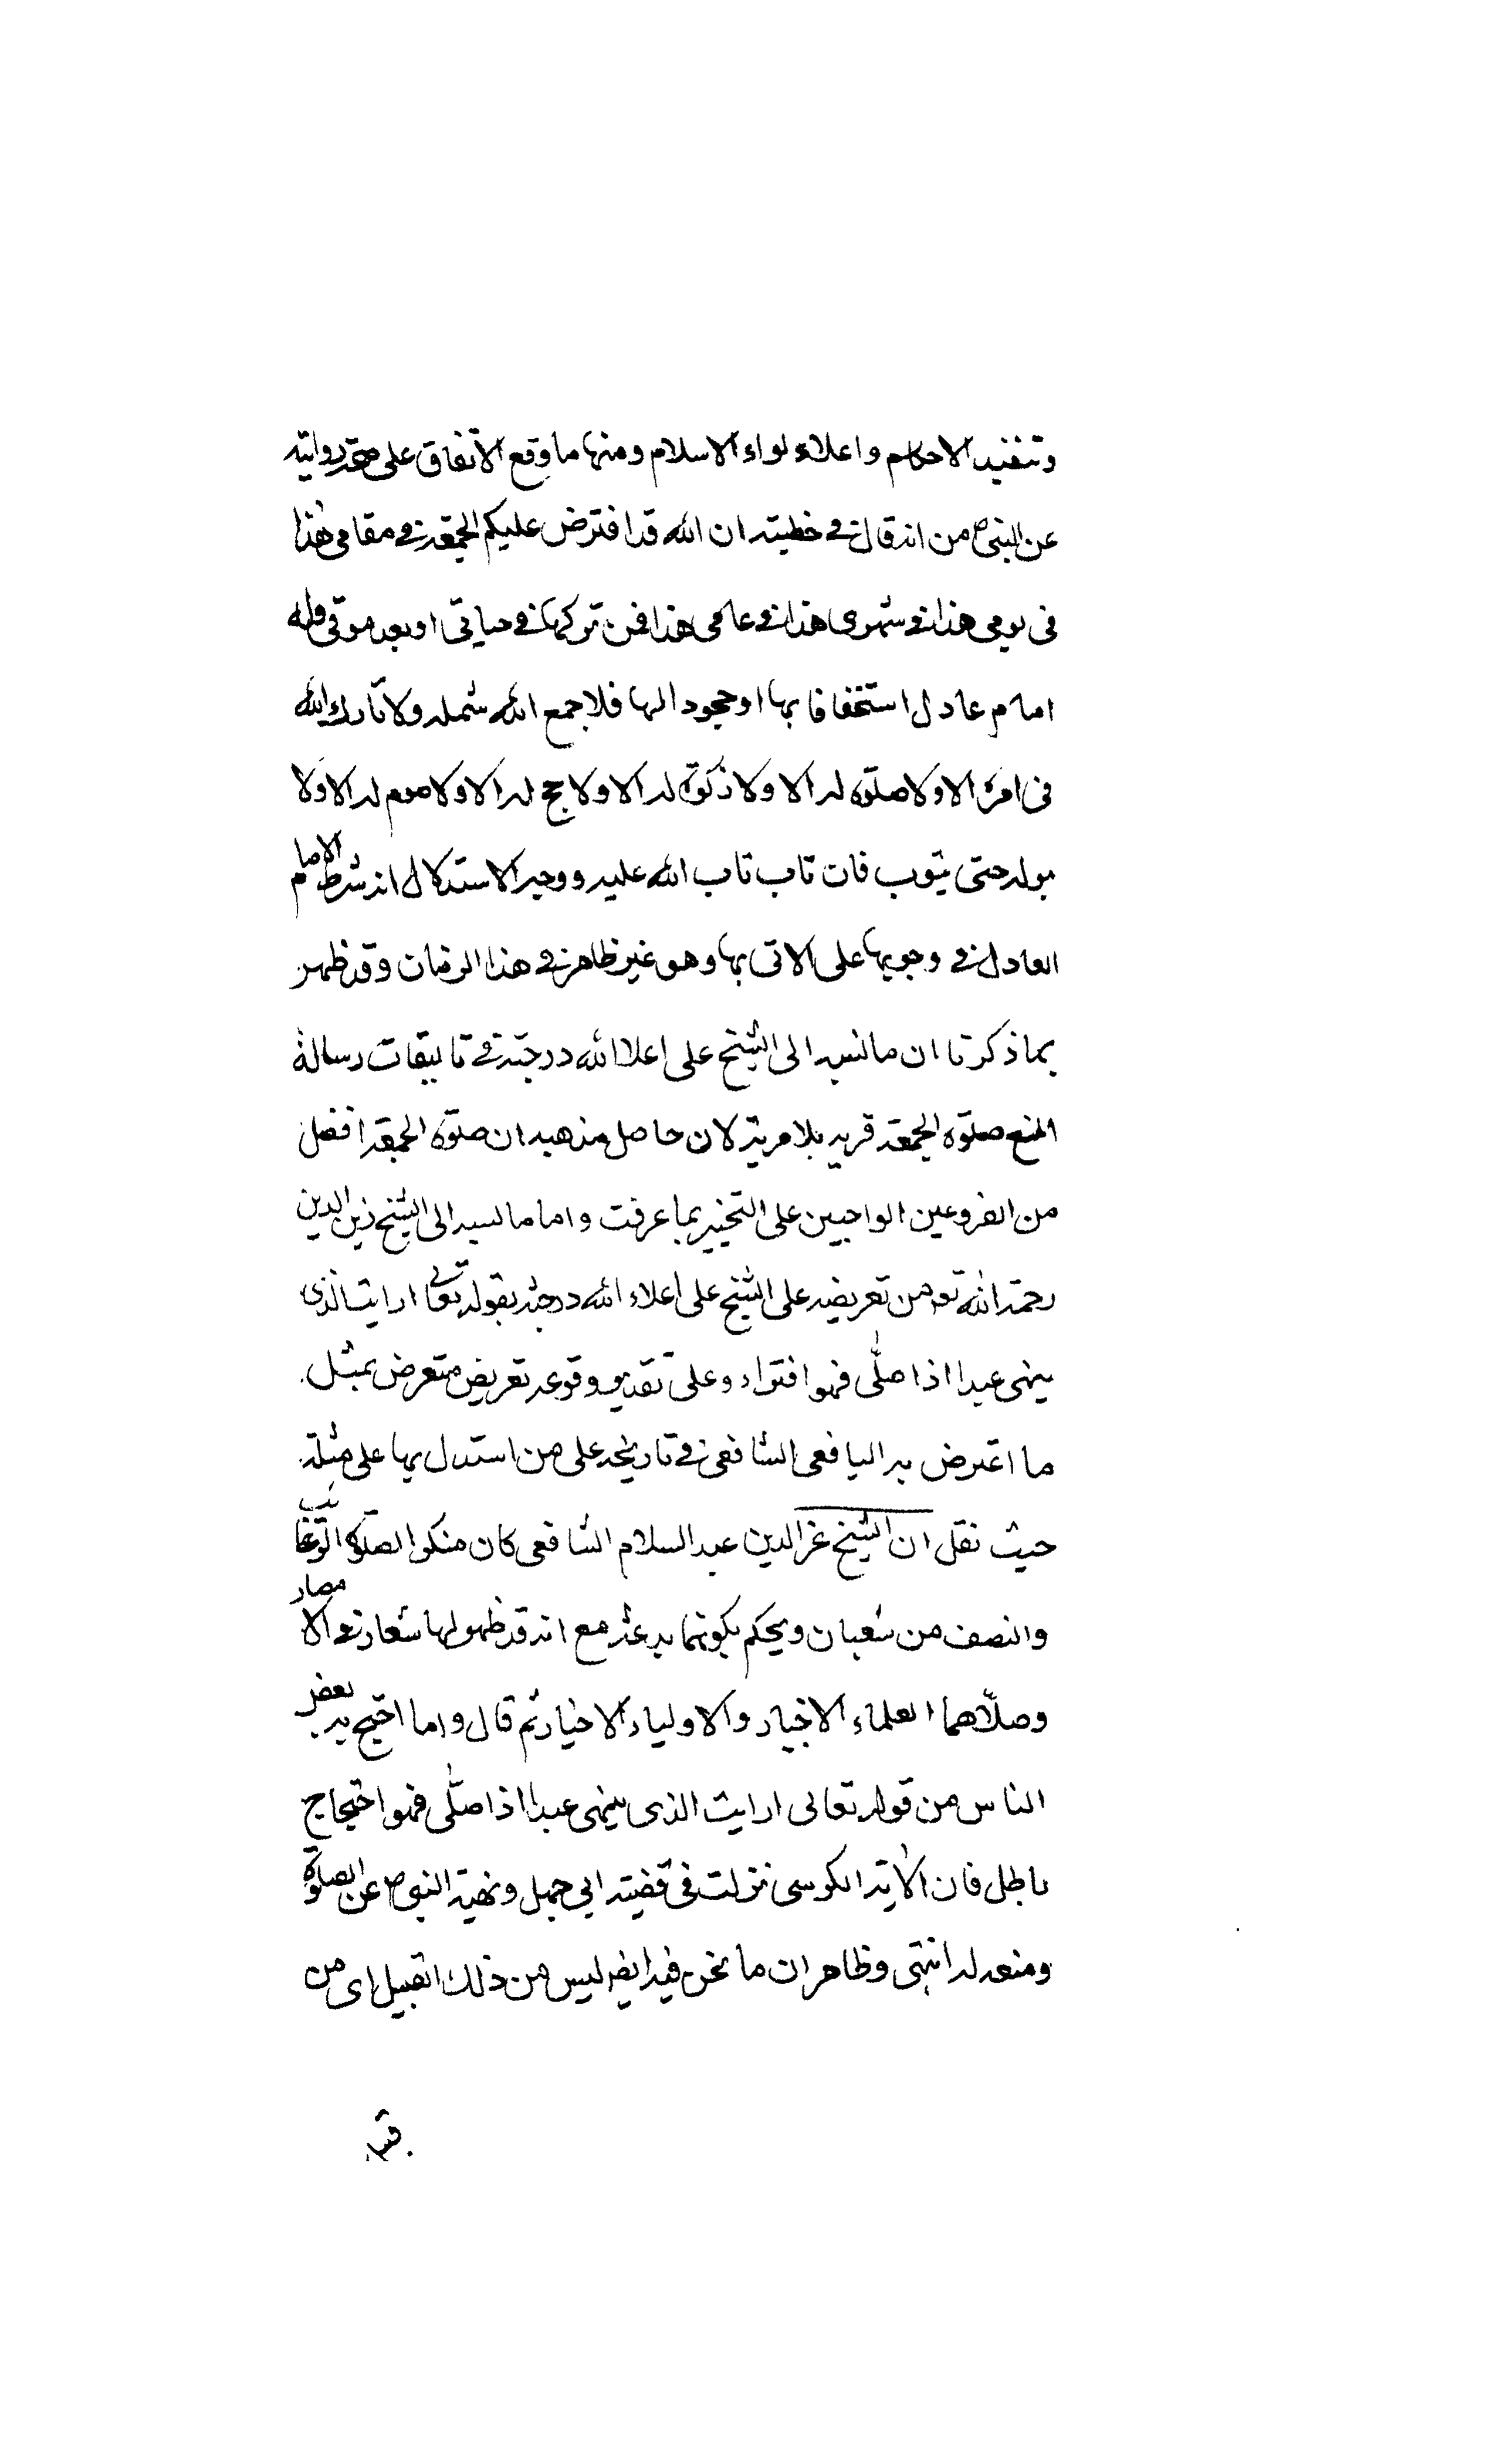 وتنفيذ الاحكام واعلاء لواء الاسلام ومنها ما وقع الاتفاق على صحة روايته
عن النبى ص من انه قال فى خطبته ان الله قد افترض عليكم الجمعة فى مقامى هذا
فى يومى هذا فى شهرى هذا فى عامى هذا فمن تركها فى حياتى او بعد موتى وله
امام عادل استخفافا بها او جحودا لها فلا جمع الله شمله ولا بارك الله
فى امره الا ولا صلوة له الا ولا زكوة له الا ولا حج له الا ولا صوم له الا ولا
بر له حتى يتوب فان تاب تاب الله عليه ووجه الاستدلال انه شرط الامام
العادل فى وجوبها على الاتى بها وهو غير ظاهر فى هذا الزمان وقد ظهر
بما ذكرنا ان ما نسبه الى الشيخ على اعلا الله درجته فى تاليفات رسالة
المنع صلوة الجمعة فريه بلا مرية لان حاصل مذهبه ان صلوة الجمعة افضل
من الفردين الواجبين على التخيير بما عرفت واما ما نسبه الى الشيخ زين الدين
رحمة الله تعه من تعريضه على الشيخ على اعلاء الله درجته بقوله تعالى ارايت الذى
ينهى عبدا اذا صلّى فهو افتراء وعلى تقدير وقوعه تعريض متعرض بمثل
ما اعترض به اليافعى الشافعى فى تاريخه على من استدل بها على مثله
حيث نقل ان الشيخ عز الدين عبد السلام الشافعى كان منكرا لصلوة الرغائب
والنصف من شعبان ويحكم بكونهما بدعة مع انه قد ظهر لها شعار فى الامصار
وصلّاهما العلماء الاخيار والاولياء الاخيار ثم قال واما احتج به بعض
الناس من قوله تعالى ارايت الذى ينهى عبدا اذا صلّى فهو احتجاج
باطل فان الاية نزلت فى قضيته ابى جهل ونهيه النبى ص عن الصلوة
ومنعه له انتهى وظاهر ان ما نحن فيه ايضا ليس من ذلك القبيل اى من